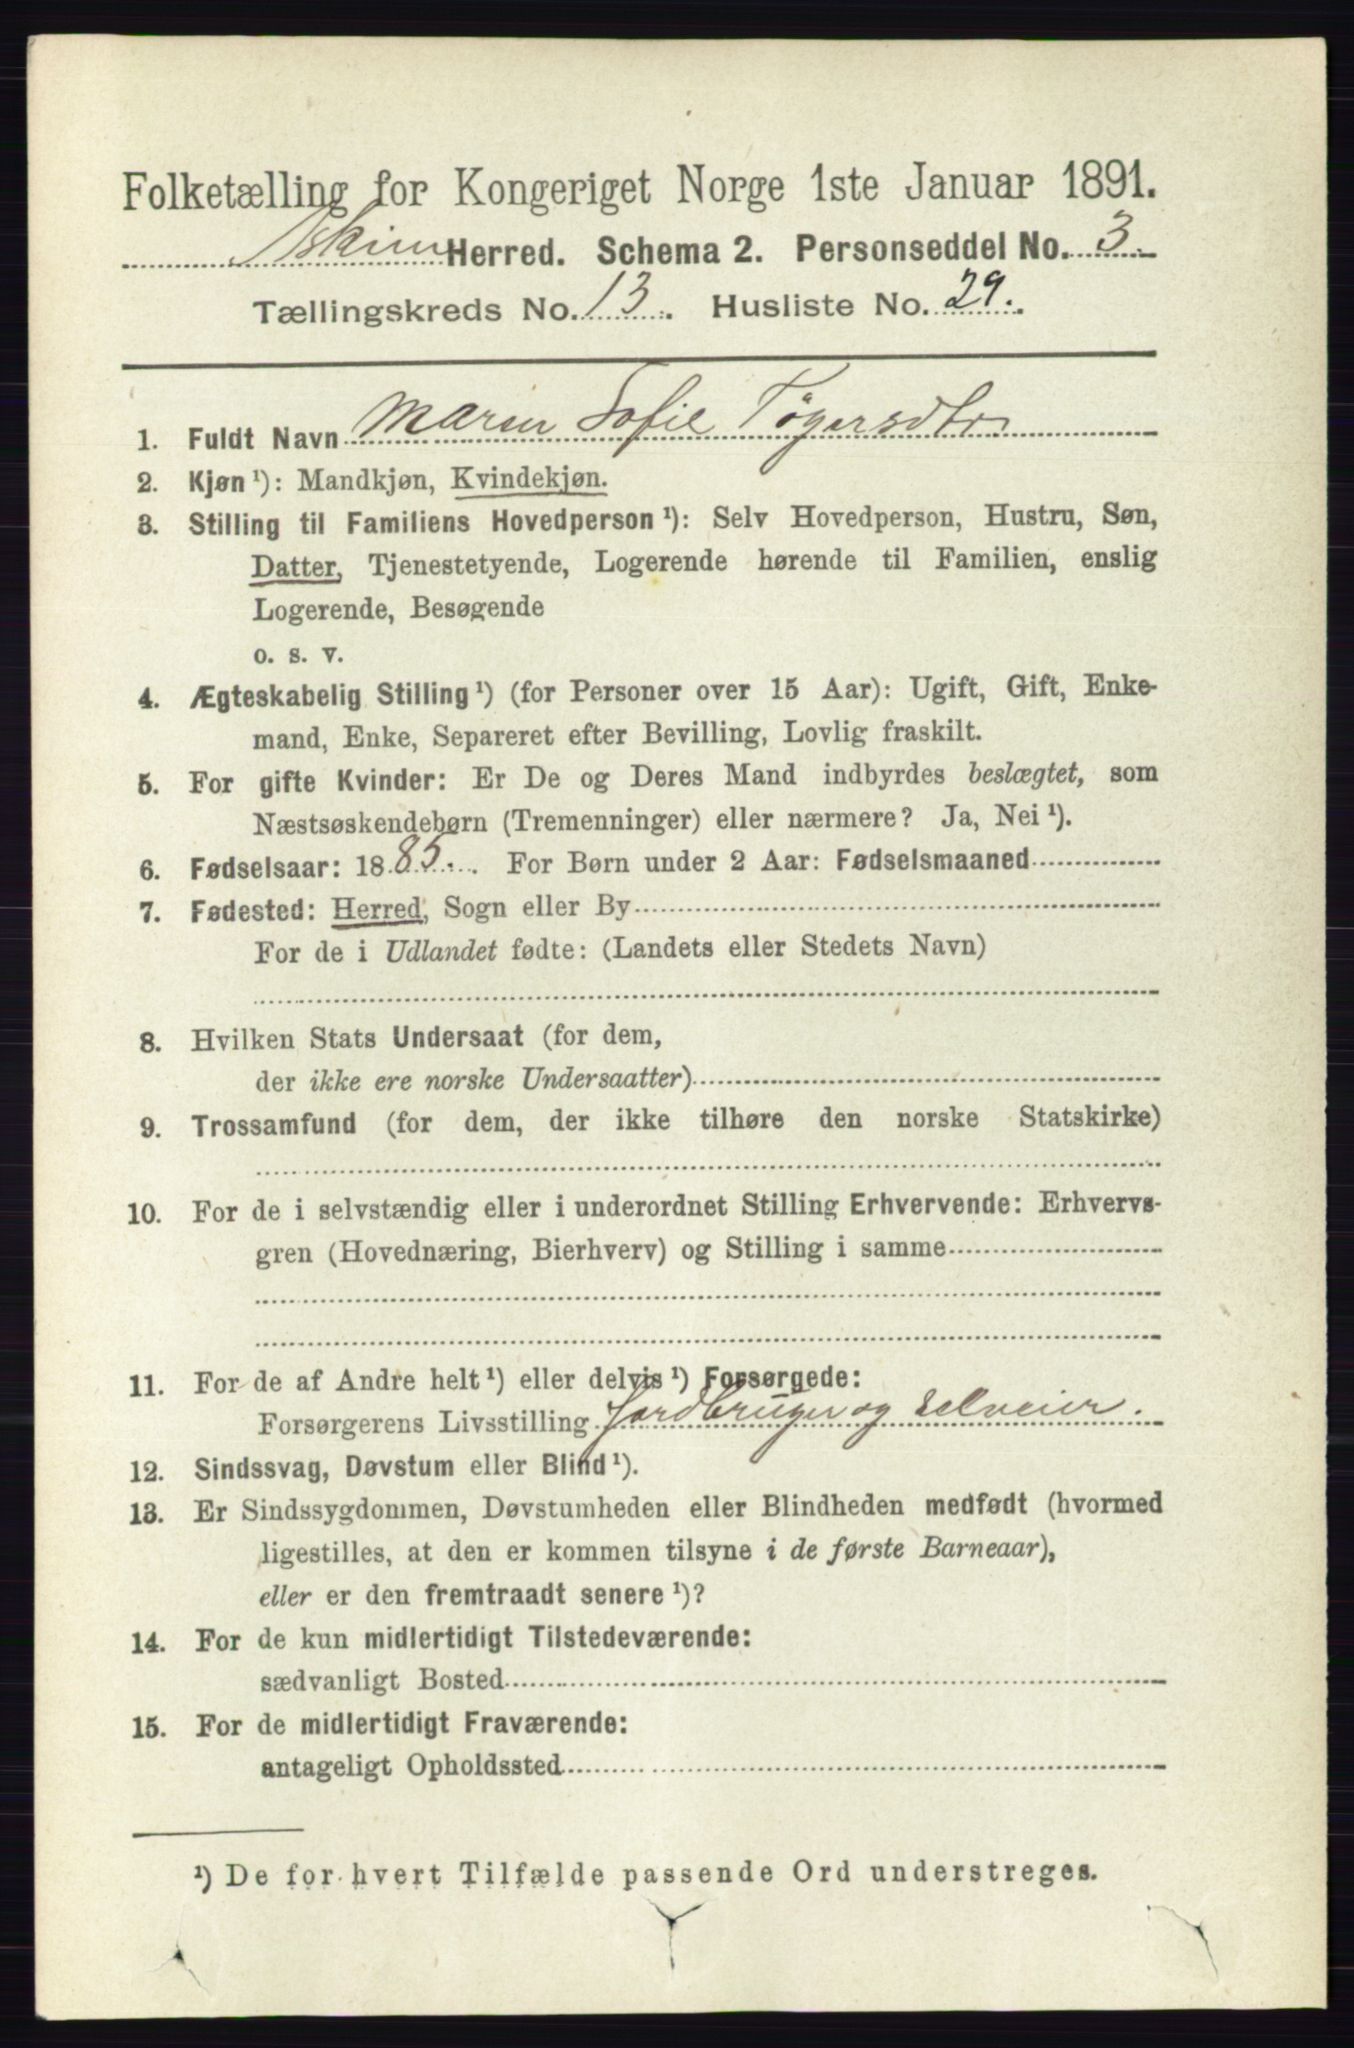 Folketælling for Kongeriget Norge 1ste Januar 1891.
Askim Herred. Schema 2. Personseddel No. 3.
Tællingskreds No. 13. Husliste No. 29.
1. Fuldt Navn Maren Sofie Tøgersdtr
2. Kjøn¹): Mandkjøn, Kvindekjøn.
3. Stilling til Familiens Hovedperson¹): Selv Hovedperson, Hustru, Søn,
Datter, Tjenestetyende, Logerende hørende til Familien, enslig
Logerende, Besøgende
o. s. v.
4. Ægteskabelig Stilling¹) (for Personer over 15 Aar): Ugift, Gift, Enke-
mand, Enke, Separeret efter Bevilling, Lovlig fraskilt.
5. For gifte Kvinder: Er De og Deres Mand indbyrdes beslægtet, som
Næstsøskendebørn (Tremenninger) eller nærmere? Ja, Nei¹).
6. Fødselsaar: 1885. For Børn under 2 Aar: Fødselsmaaned
7. Fødested: Herred, Sogn eller By
For de i Udlandet fødte: (Landets eller Stedets Navn)
8. Hvilken Stats Undersaat (for dem,
der ikke ere norske Undersaatter)
9. Trossamfund (for dem, der ikke tilhøre den norske Statskirke)
10. For de i selvstændig eller i underordnet Stilling Erhvervende: Erhvervs-
gren (Hovednæring, Bierhverv) og Stilling i samme
11. For de af Andre helt¹) eller delvis¹) Forsørgede:
Forsørgerens Livsstilling Jordbruger og selveier.
12. Sindssvag, Døvstum eller Blind¹).
13. Er Sindssygdommen, Døvstumheden eller Blindheden medfødt (hvormed
ligestilles, at den er kommen tilsyne i de første Barneaar),
eller er den fremtraadt senere¹)?
14. For de kun midlertidigt Tilstedeværende:
sædvanligt Bosted
15. For de midlertidigt Fraværende:
antageligt Opholdssted
¹) De for hvert Tilfælde passende Ord understreges.